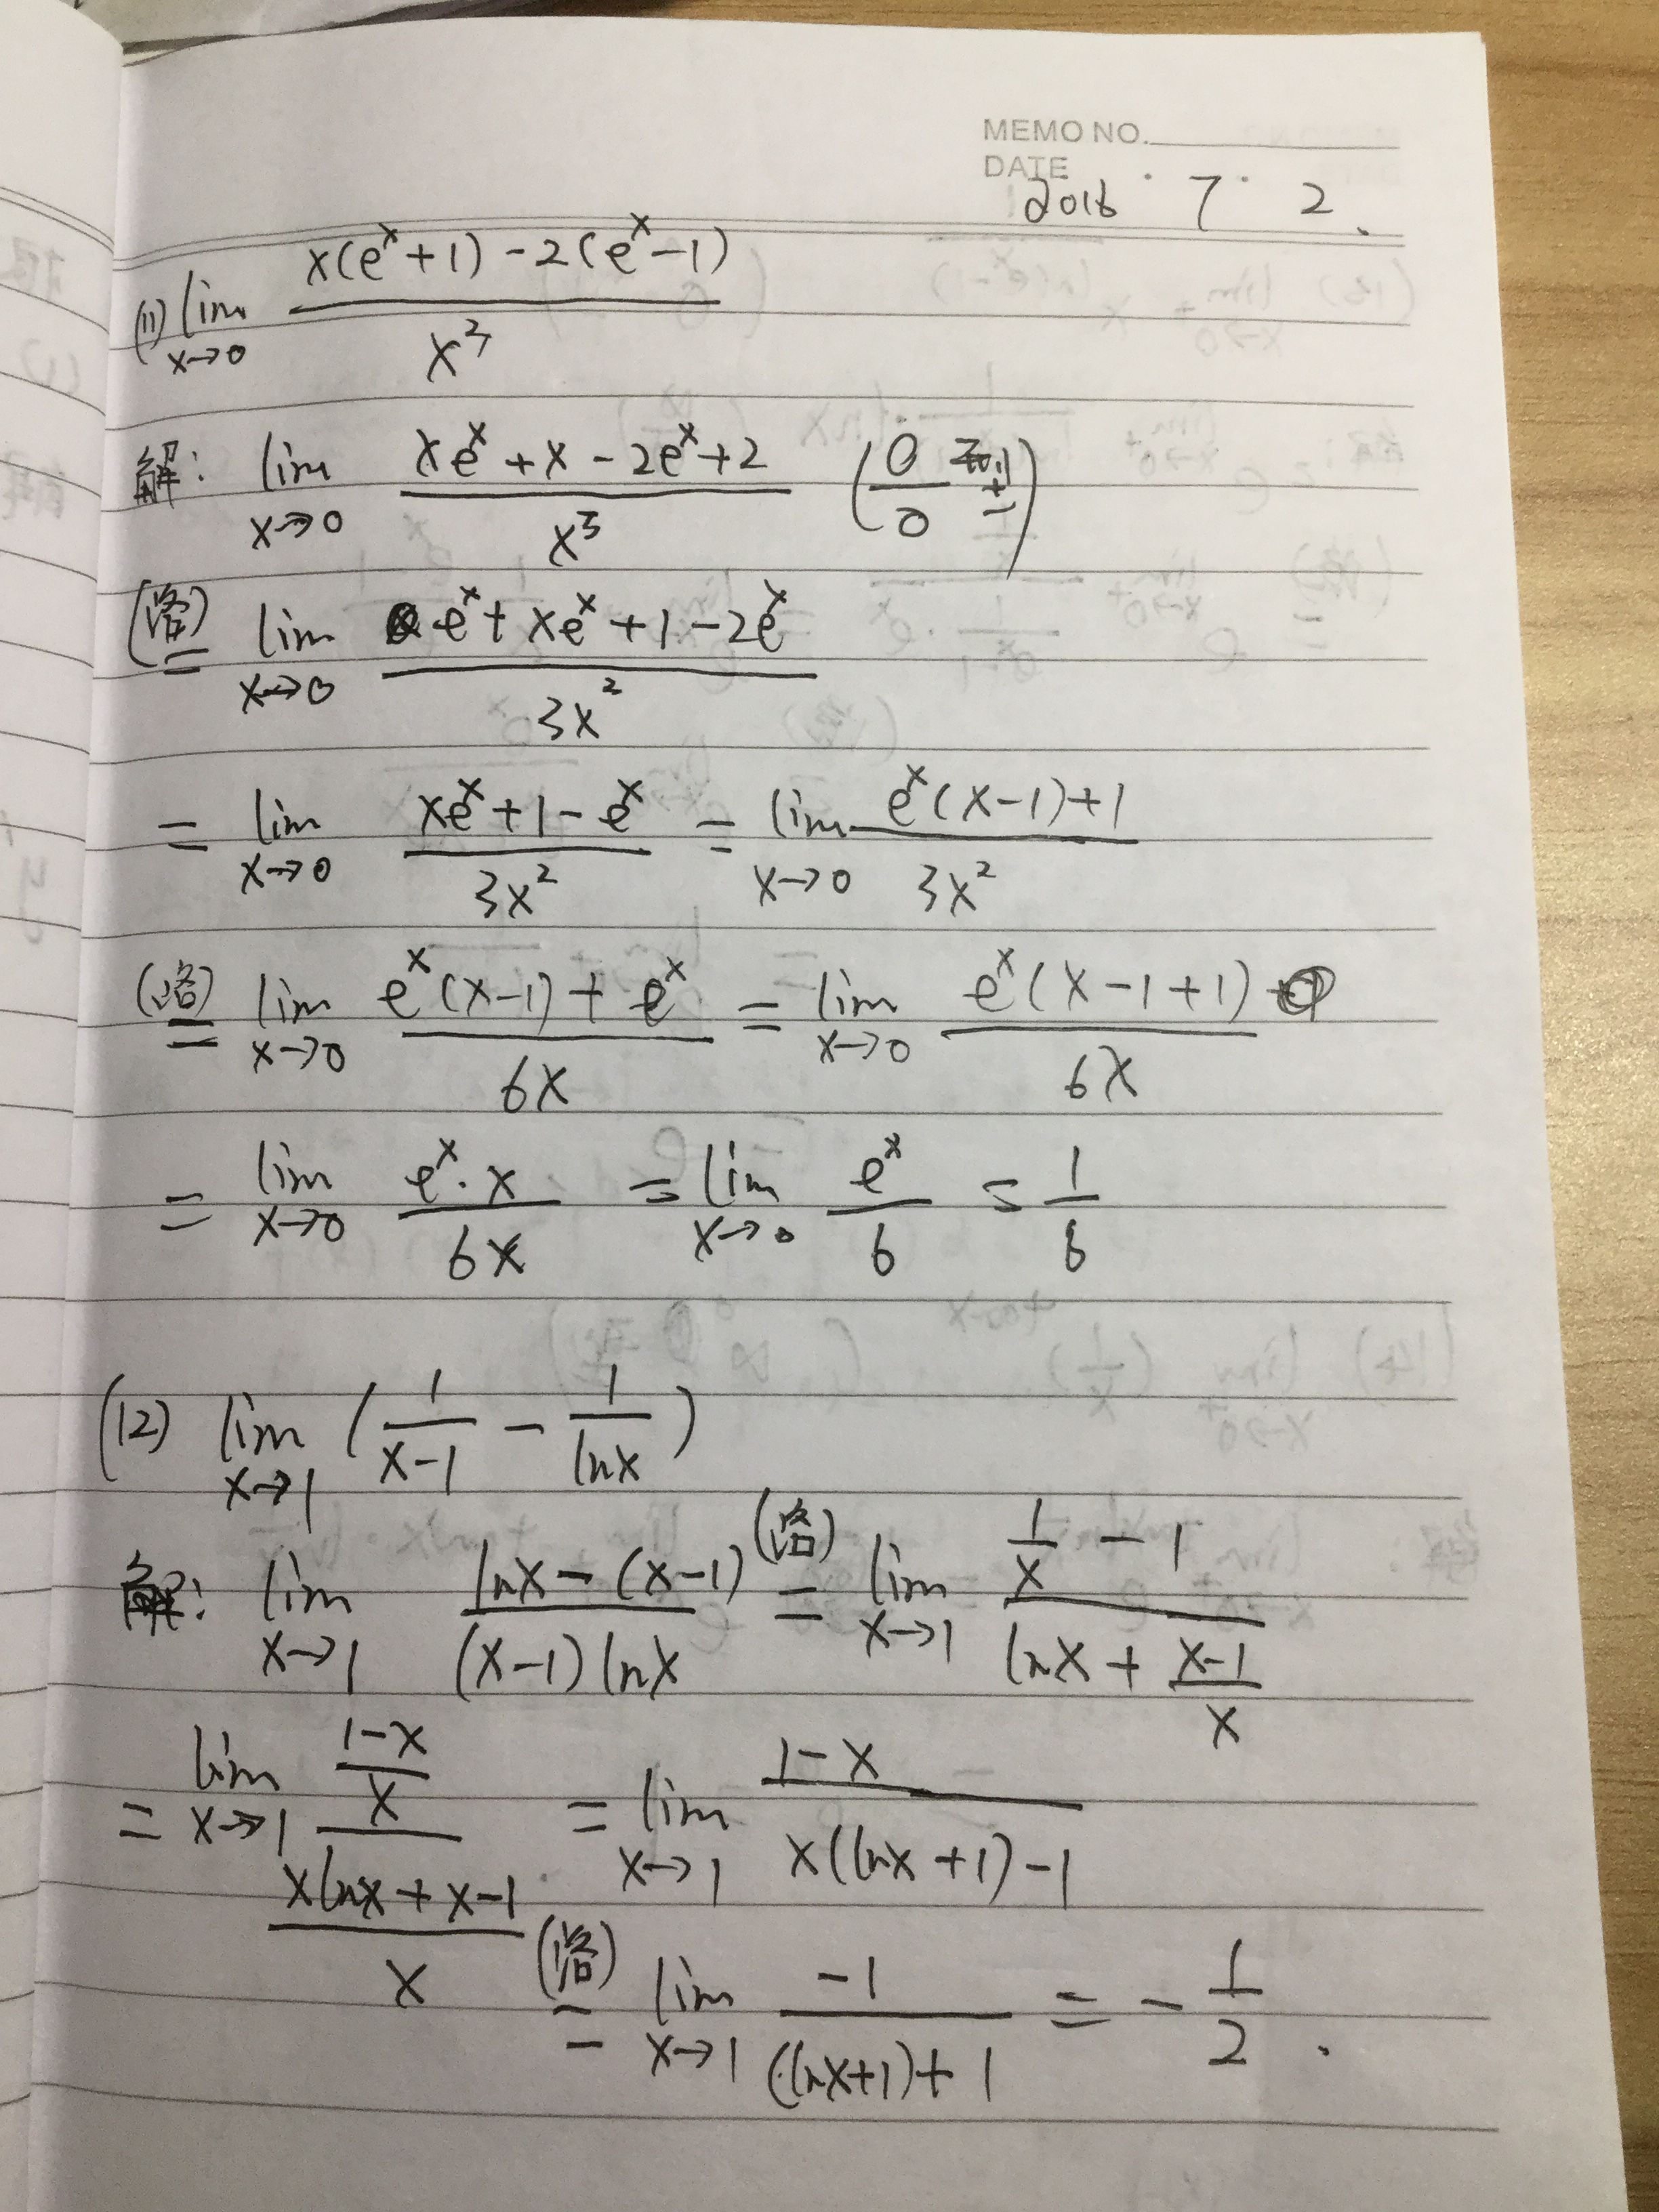 MEMO NO.
DATE 2016 · 7 · 2.
(11) lim x→0 (x(eˣ+1)-2(eˣ-1))/x³
解: lim x→0 (xeˣ+x-2eˣ+2)/x³ (0/0 型)
(洛)= lim x→0 (eˣ+xeˣ+1-2eˣ)/3x²
= lim x→0 (xeˣ+1-eˣ)/3x² = lim x→0 (eˣ(x-1)+1)/3x²
(洛)= lim x→0 (eˣ(x-1)+eˣ)/6x = lim x→0 eˣ(x-1+1)/6x
= lim x→0 (eˣ·x)/6x = lim x→0 eˣ/6 = 1/6
(12) lim x→1 (1/(x-1) - 1/lnx)
解: lim x→1 (lnx-(x-1))/((x-1)lnx) (洛)= lim x→1 (1/x - 1)/(lnx + (x-1)/x)
= lim x→1 ((1-x)/x)/((xlnx+x-1)/x) = lim x→1 (1-x)/(x(lnx+1)-1)
(洛)= lim x→1 -1/((lnx+1)+1) = -1/2.